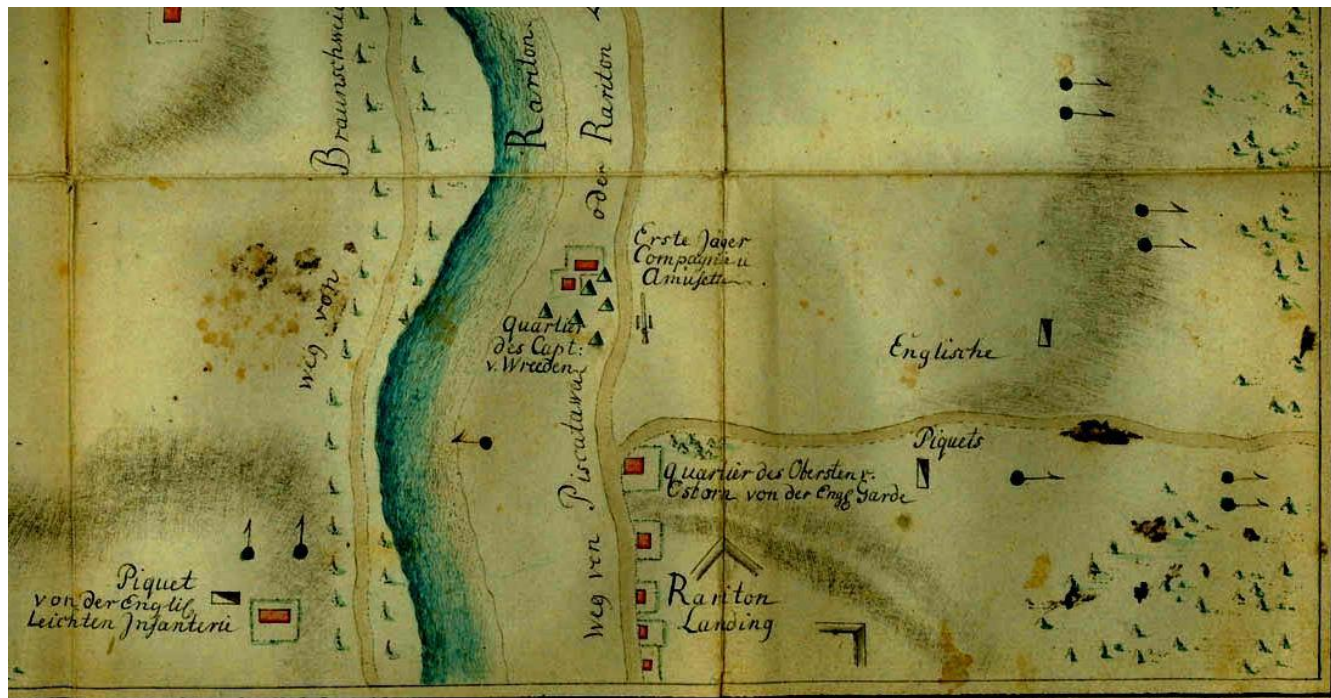 weg von Braunschwei
Rariton
weg von Piscataway oder Rariton
Erste Jäger
Compagnie u
Amusette
Quartier
des Capt:
v. Wreeden
Englische
Piquets
quartier des Obersten v.
Osborn von der Engl Garde
Piquet
von der Englis.
Leichten Infanterie
Rariton
Landing